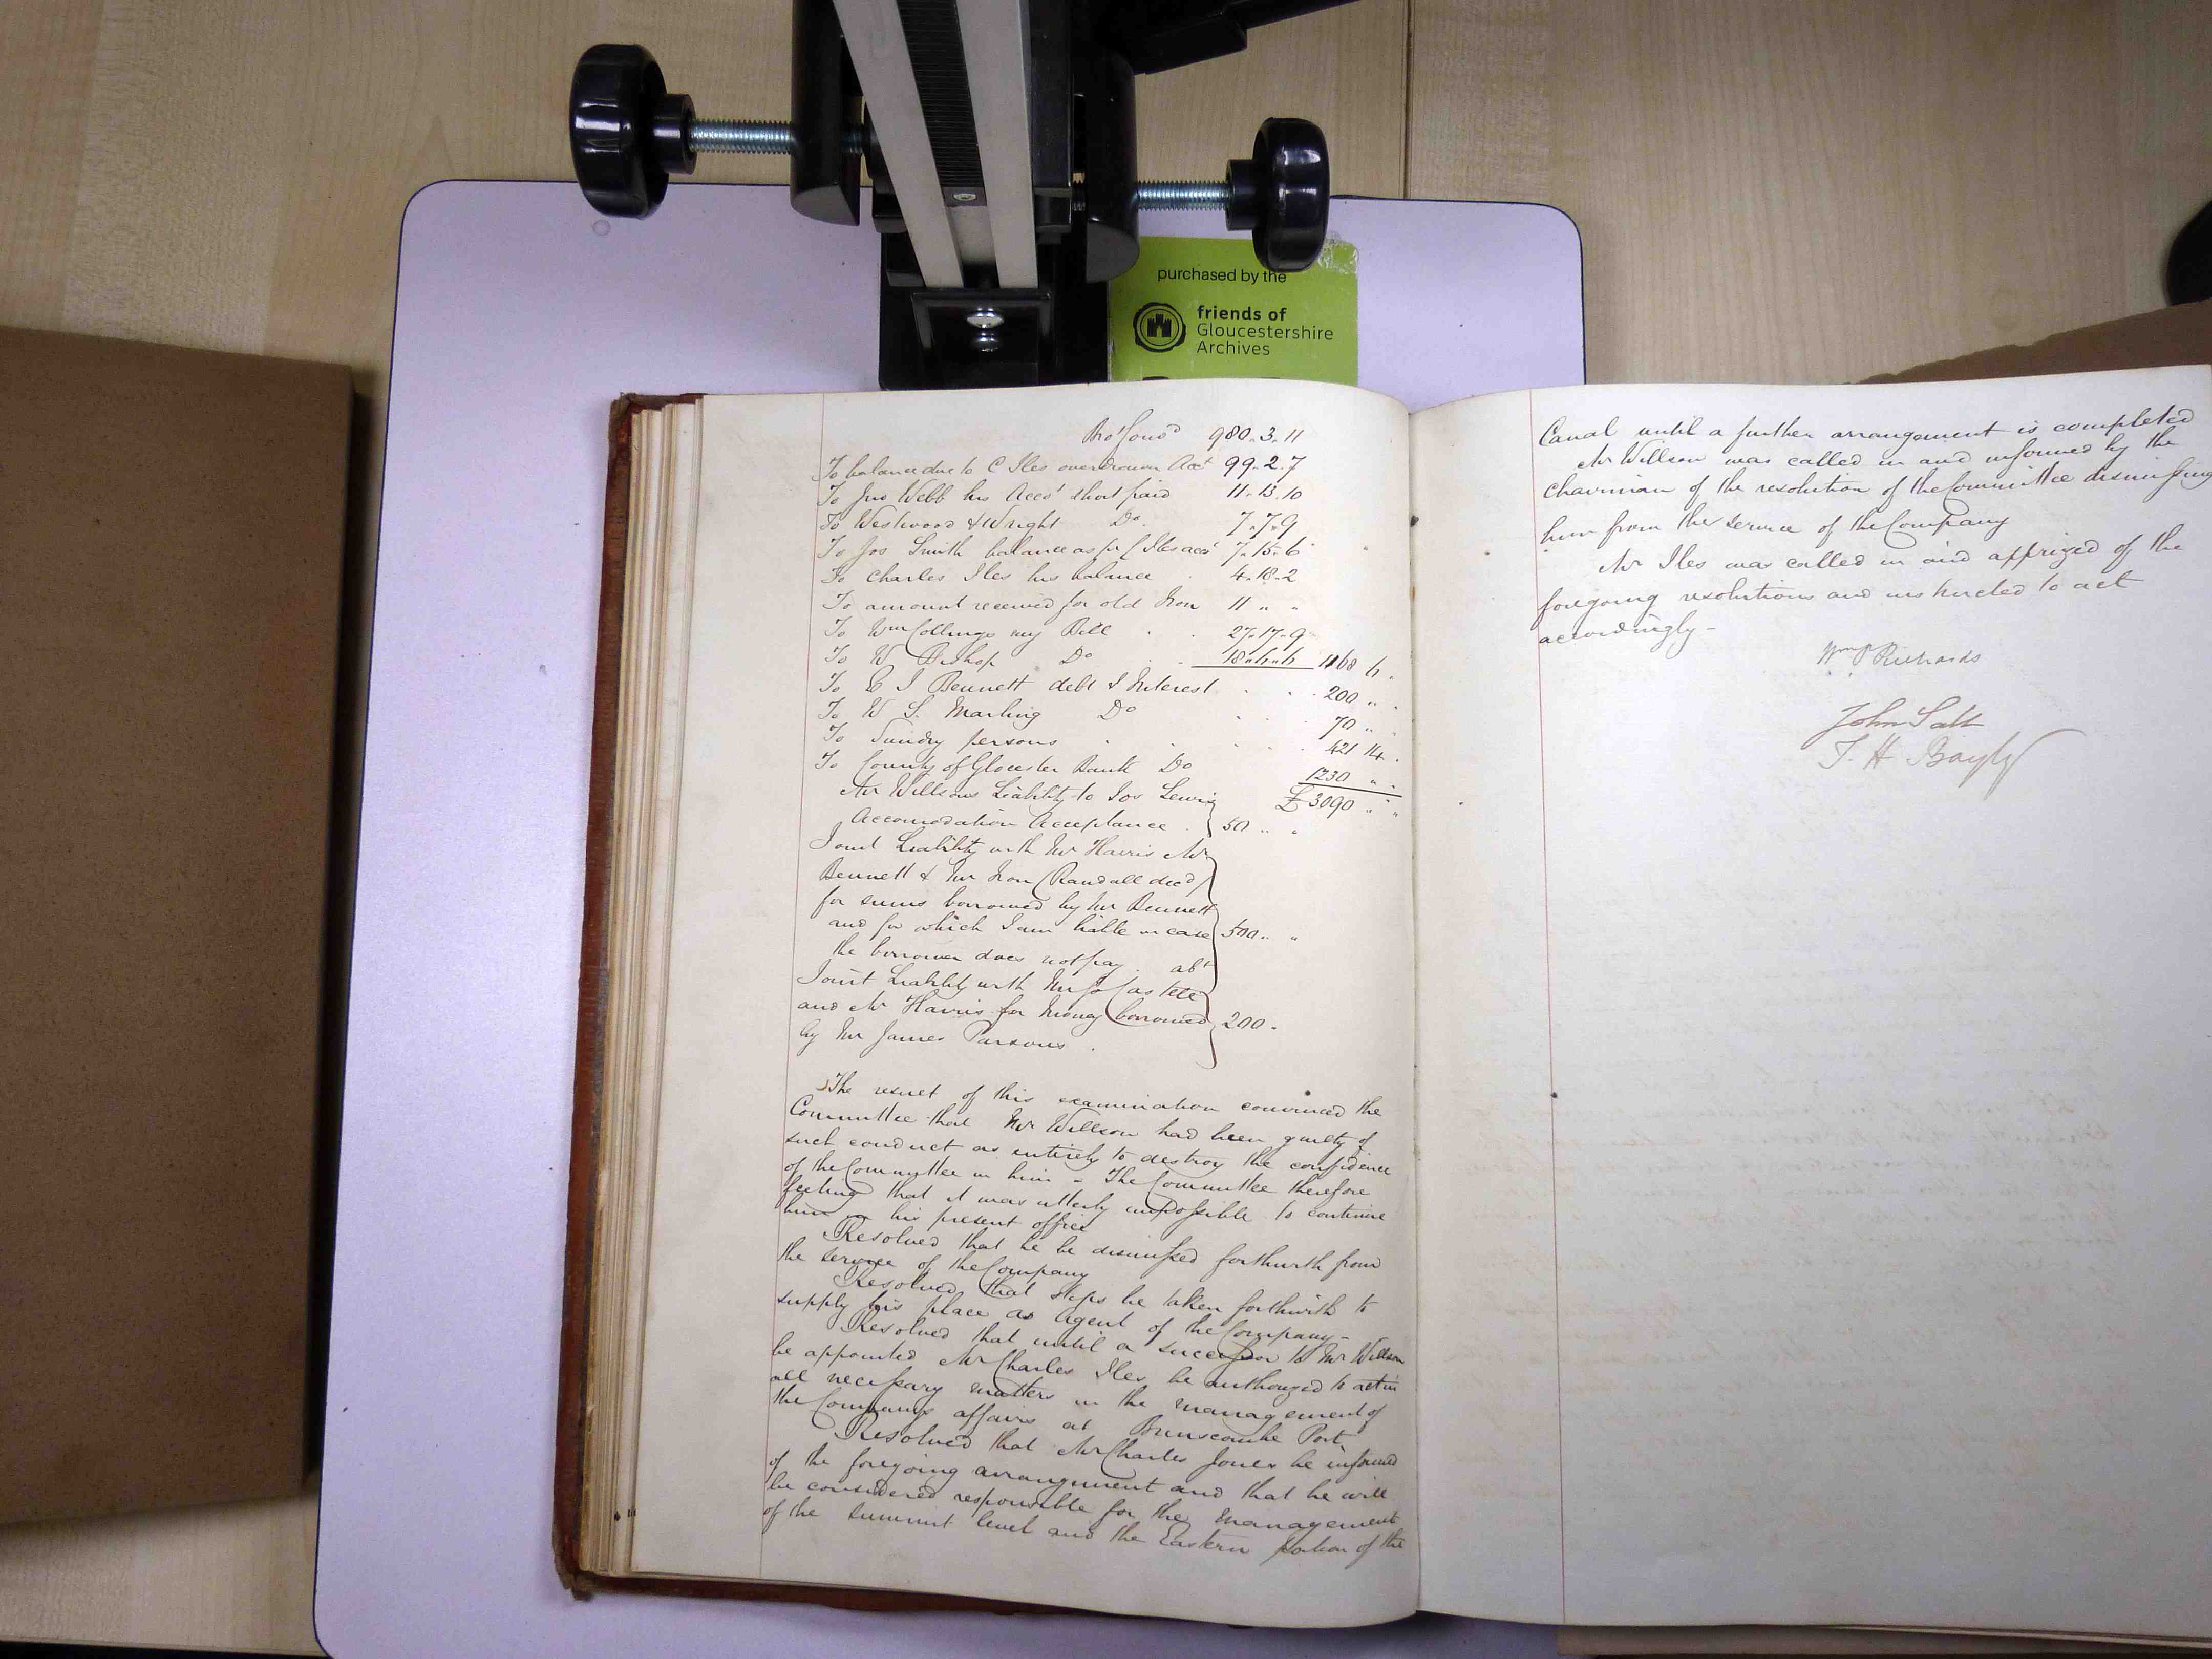 purchased by the
friends of
Gloucestershire
Archives
Bro' forwd 980.. 3.. 11
To balance due to C Iles overdrawn Acct 99.. 2.. 7
To Jno Webb his Acct short paid 11.. 13.. 10
To Westwood & Wright Do 7.. 7.. 9
To Jos Smith balance as pr C Iles acct 7.. 15.. 6
To Charles Iles his balance 4.. 18.. 2
To amount received for old Iron 11 .. ..
To Wm Collings my Bill 27.. 17.. 9
To W Bishop Do 18.. 6.. 6 1168 6 .
To E J Bennett debt & Interest 200 .. ..
To W S. Marling Do 70 .. ..
To Sundry persons 421 14 .
To County of Glocester Bank Do 1230 .. ..
Mr Willsons Liability to Jos Lewis £3090 .. ..
Accomodation Acceptance 50 .. ..
Joint Liability with Mr Harris Mr
Bennett & Mr Iron (Randall decd)
for sums borrowed by Mr Bennett
and for which I am liable in case 500 .. ..
the borrower does not pay abt
Joint Liability with
and Mr Harris for Money borrowed 200 -
by Mr James Parsons
The result of this examination convinced the
Committee that Mr Willson had been guilty of
such conduct as entirely to destroy the confidence
of the Committee in him - The Committee therefore
feeling that it was utterly impossible to continue
him in his present office
Resolved that he be dismissed forthwith from
the service of the Company
Resolved that steps be taken forthwith to
supply his place as Agent of the Company -
Resolved that until a successor to Mr Willson
be appointed Mr Charles Iles be authorized to act in
all necessary matters in the management of
the Companys affairs at Brimscombe Port
Resolved that Mr Charles Jones be informed
of the foregoing arrangement and that he will
be considered responsible for the Management
of the summit level and the Eastern portion of the
Canal until a further arrangement is completed
Mr Willson was called in and informed by the
Chairman of the resolution of the Committee dismissing
him from the service of the Company
Mr Iles was called in and apprized of the
foregoing resolutions and instructed to act
accordingly -
Wm P Richards
John Salt
T. H Bayly